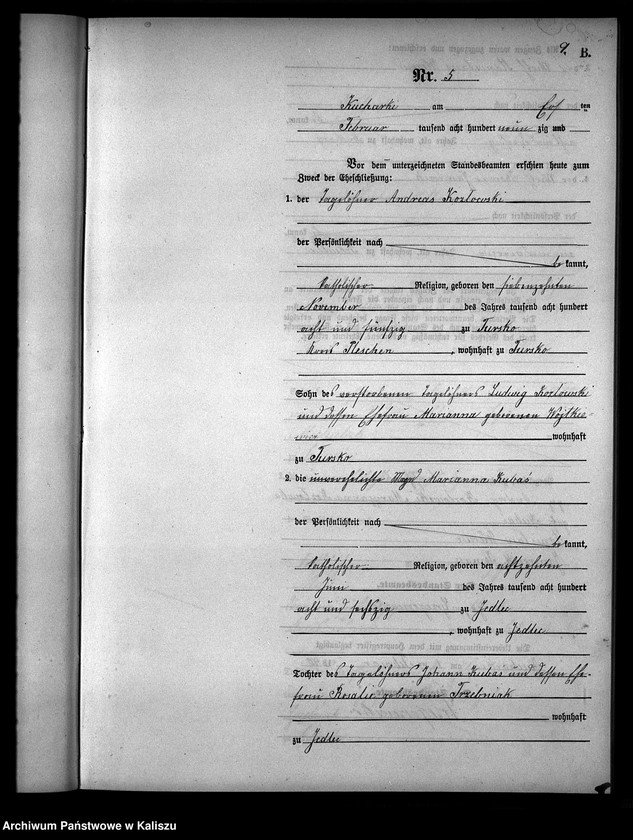 9. B.
Nr. 5
Kucharki am Elf ten
Februar tausend acht hundert neun zig und
Vor dem unterzeichneten Standesbeamten erschien heute zum
Zweck der Eheschließung:
1. der Tagelöhner Andreas Kozlowski
der Persönlichkeit nach
be kannt,
katholischer Religion, geboren den siebenzehnten
November des Jahres tausend acht hundert
acht und fünfzig zu Tursko
Kreis Pleschen, wohnhaft zu Tursko
Sohn des verstorbenen Tagelöhners Ludwig Kozlowski
und dessen Ehefrau Marianna geborenen
wohnhaft
zu Tursko
2. die unverehelichte Magd Marianna Kubas
der Persönlichkeit nach
be kannt,
katholischer Religion, geboren den achtzehnten
Juni des Jahres tausend acht hundert
acht und sechzig zu Jedlec
, wohnhaft zu Jedlec
Tochter des Tagelöhners Johann Kubas und dessen Ehe-
frau Rosalie geborenen
wohnhaft
zu Jedlec
Archiwum Państwowe w Kaliszu